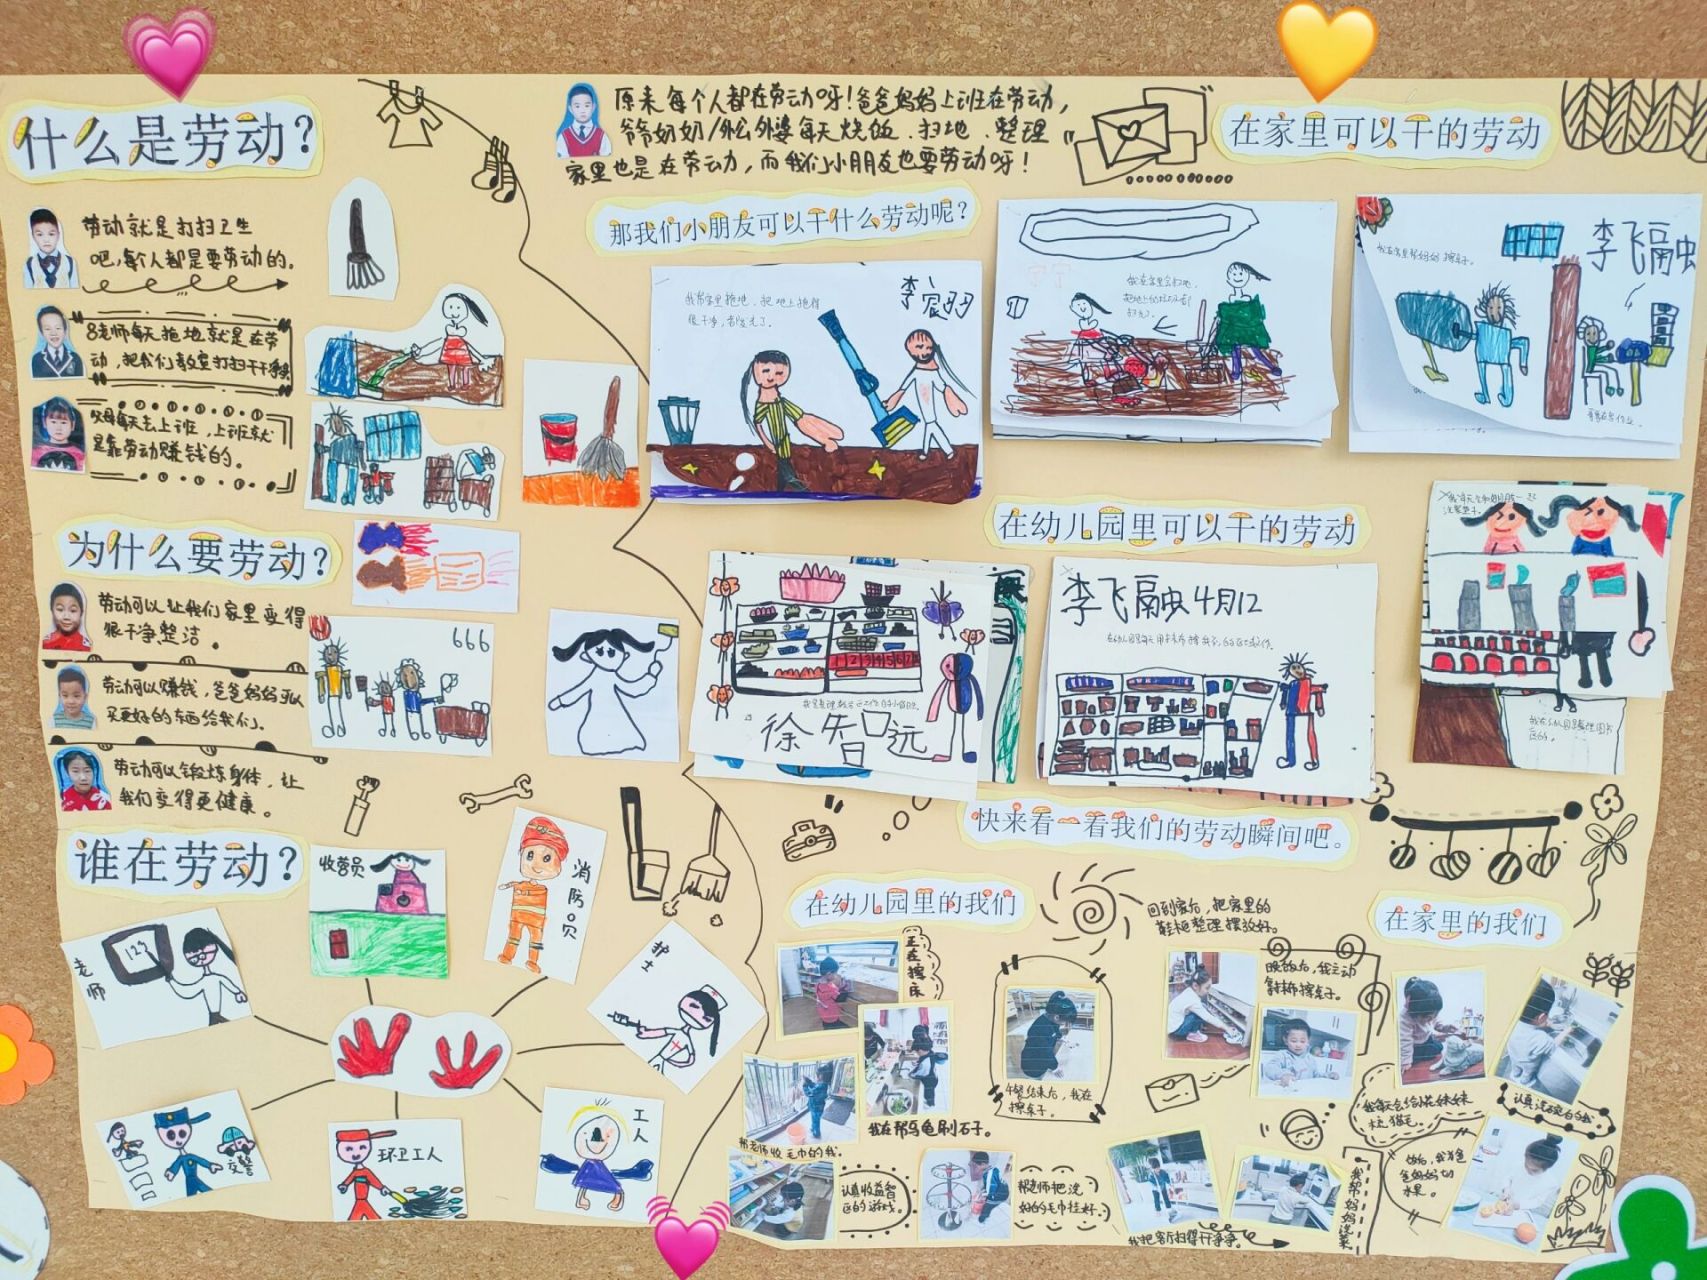 什么是劳动?
劳动就是打扫卫生
吧,每个人都是要劳动的。
吕老师每天拖地就是在劳
动,把我们教室打扫干干净净
父母每天去上班,上班就
是靠劳动赚钱的。
为什么要劳动?
劳动可以让我们家里变得
很干净整洁。
劳动可以赚钱,爸爸妈妈可以
买更好的东西给我们。
劳动可以锻炼身体,让
我们变得更健康。
666
谁在劳动?
收营员
消防员
老师
123
护士
交警
环卫工人
工人
原来每个人都在劳动呀!爸爸妈妈上班在劳动,
爷爷奶奶/外公外婆每天烧饭、扫地、整理
家里也是在劳动,而我们小朋友也要劳动呀!
那我们小朋友可以干什么劳动呢?
在家里可以干的劳动
我帮家里拖地,把地上拖得
很干净,
李宸羽
我在家里会扫地,
李飞融
我在家里帮妈妈擦桌子。
在幼儿园里可以干的劳动
徐智远
李飞融4月12
快来看一看我们的劳动瞬间吧。
在幼儿园里的我们
正在擦床
午餐结束后,我在
擦桌子。
我在帮乌龟刷石子。
帮老师收毛巾的我。
认真收益智
区的游戏。
帮老师把洗
好的毛巾挂好。
在家里的我们
回到家后,把家里的
鞋柜整理摆放好。
晚饭后,我主动
拿抹布擦桌子。
我每天会给花妹妹
梳猫毛。
认真洗碗的我
饭后,我为爸
爸妈妈切
水果。
我把客厅扫得干净净。
我帮妈妈洗菜